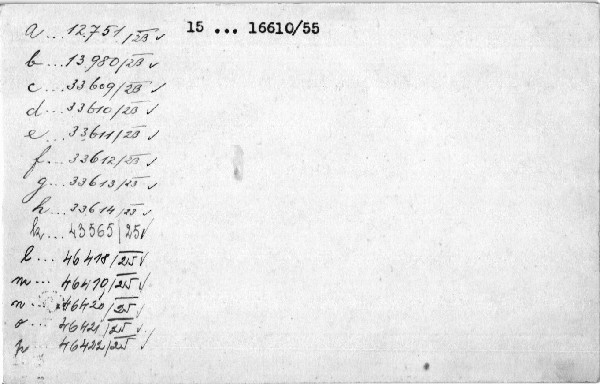 a...12751/23 ✓ 15 ... 16610/55
b...13980/23 ✓
c...33609/23 ✓
d...33610/23 ✓
e...33611/23 ✓
f...33612/23 ✓
g...33613/23 ✓
h...33614/23 ✓
k...43565/25 ✓
l...46418/25 ✓
m...46419/25 ✓
n...46420/25 ✓
o...46421/25 ✓
p...46422/25 ✓